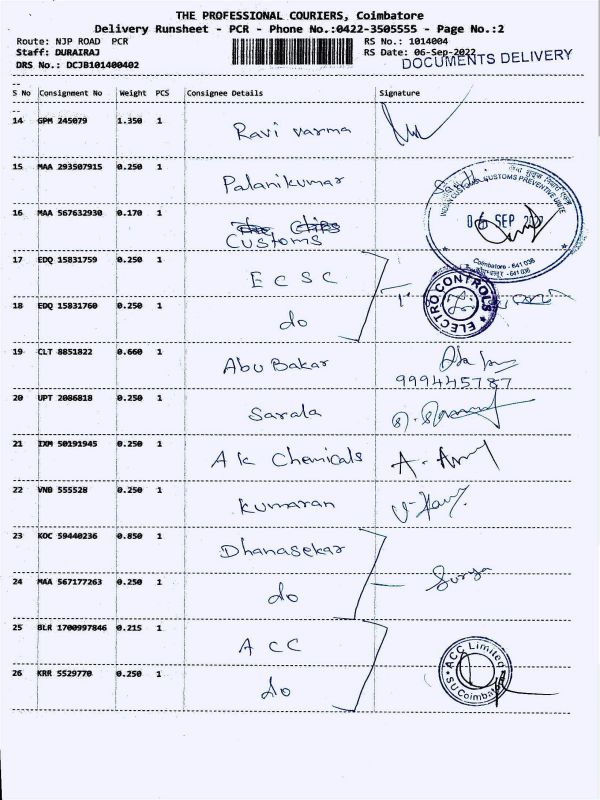 THE PROFESSIONAL COURIERS, Coimbatore
Delivery Runsheet - PCR - Phone No.:0422-3505555 - Page No.:2
Route: NJP ROAD PCR RS No.: 1014004
Staff: DURAIRAJ RS Date: 06-Sep-2022
DRS No.: DCJB101400402 DOCUMENTS DELIVERY
S No Consignment No Weight PCS Consignee Details Signature
14 GPM 245079 1.350 1 Ravi varma
15 MAA 293507915 0.250 1 Palanikumar
16 MAA 567632930 0.170 1 Customs
INDIAN CUSTOMS CUSTOMS PREVENTIVE UNIT
06 SEP
Coimbatore - 641 036
17 EDQ 15831759 0.250 1 ECSC
ELECTRO CONTROLS
18 EDQ 15831760 0.250 1 do
19 CLT 8851822 0.660 1 Abu Bakar
999445787
20 UPT 2086818 0.250 1 Sarala
21 IXM 50191945 0.250 1 A K Chemicals
22 VNB 555528 0.250 1 Kumaran
23 KOC 59440236 0.850 1 Dhanasekar
24 MAA 567177263 0.250 1 do Surya
25 BLR 1700997846 0.215 1 ACC
ACC Limited
SU Coimbatore
26 KRR 5529770 0.250 1 do